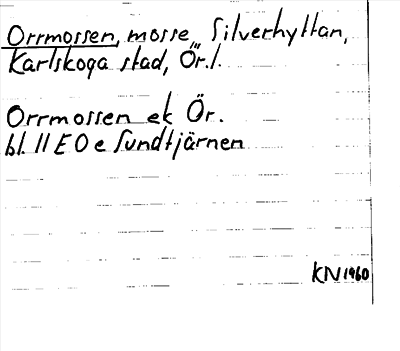 Orrmossen, mosse, Silverhyttan,
Karlskoga stad, Ör.l.
Orrmossen ek Ör.
bl. 11 E O e Sundtjärnen
KN 1960